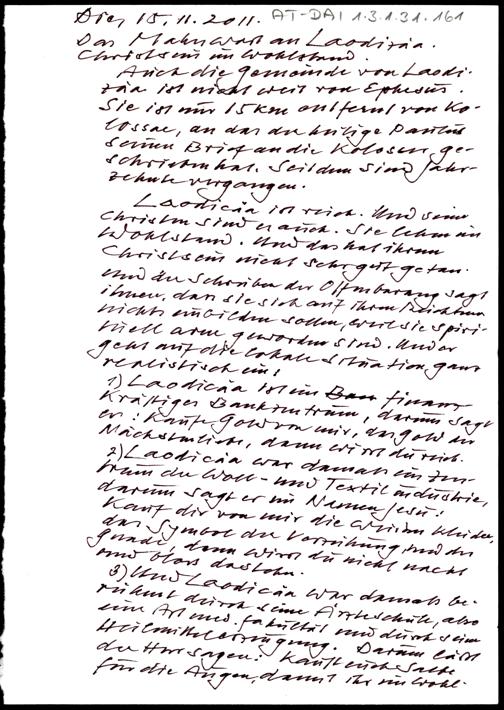 Die, 15.11.2011. AT-DAI 1.3.1.31.161
Das Mahnwort an Laodizäa.
Christsein im Wohlstand.
Auch die Gemeinde von Laodi-
zäa ist nicht weit von Ephesus.
Sie ist nur 15 km entfernt von Ko-
lossae, an das der heilige Paulus
seinen Brief an die Kolosser ge-
schrieben hat. Seitdem sind Jahr-
zehnte vergangen.
Laodicäa ist reich. Und seine
Christen sind es auch. Sie leben im
Wohlstand. Und das hat ihrem
Christsein nicht sehr gut getan.
Und der Schreiber der Offenbarung sagt
ihnen, dass sie sich auf ihren Reichtum
nichts einbilden sollen, weil sie spiri-
tuell arm geworden sind. Und er
geht auf die lokale Situation ganz
realistisch ein:
1) Laodicäa ist ein finanz
kräftiges Bankzentrum, darum sagt
er: Kaufe Gold von mir, das Gold der
Nächstenliebe, dann wirst du reich.
2) Laodicäa war damals ein Zen-
trum der Woll- und Textilindustrie,
darum sagt er im Namen Jesu:
Kauf dir von mir die weissen Kleider,
das Symbol der Verzeihung und der
Gnade, dann wirst du nicht nackt
und bloss dastehn.
3) Und Laodicäa war damals be-
rühmt durch seine Ärzteschule, also
eine Art med. Fakultät und durch seine
Heilmittelerzeugung. Darum lässt
der Herr sagen: Kauft euch Salbe
für die Augen, damit ihr im Wohl-